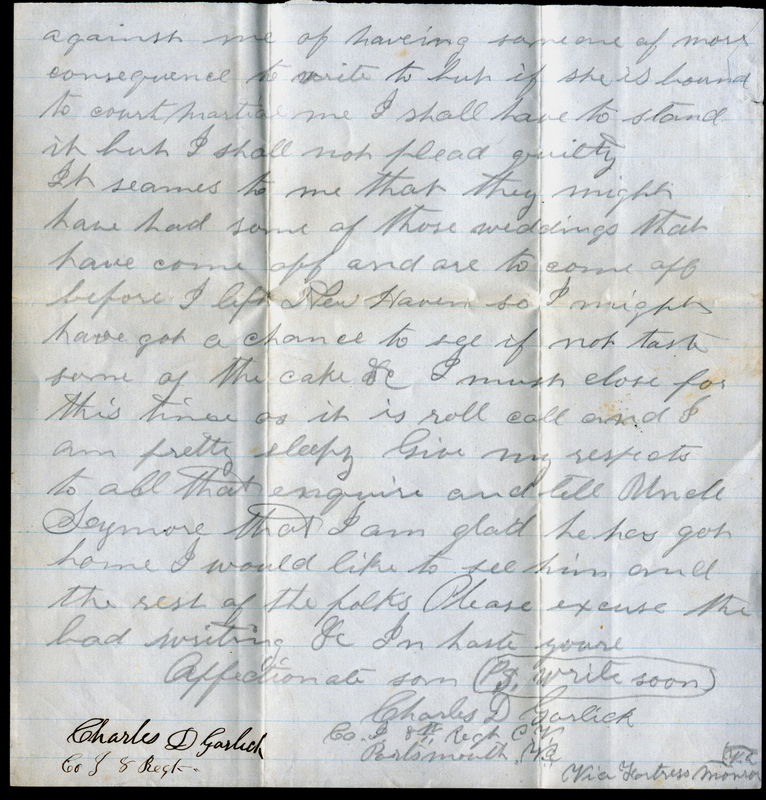 against me of haveing someone of more
consequence to write to but if she is bound
to court martial me I shall have to stand
it but I shall not plead guilty
It seames to me that they might
have had some of those weddings that
have come off and are to come off
before I left New Haven so I might
have got a chance to see if not taste
some of the cake &c I must close for
this time as it is roll call and I
am pretty sleepy Give my respects
to all that enquire and tell Uncle
Seymore that I am glad he has got
home I would like to see him and
the rest of the folks Please excuse the
bad writing &c In haste youre
Affectionate son (PS. write soon)
Charles D Garlick
Co. I 8th Regt C.V.
Portsmouth Va
Via Fortress Monroe
Va
Charles D Garlick
Co I 8 Regt.